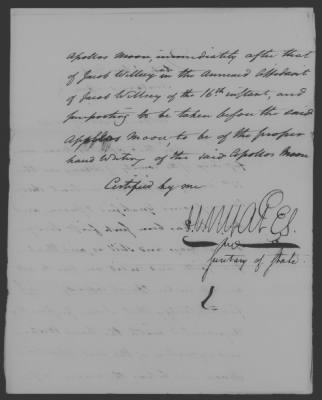 Apollos Moon, immediatily after that
of Jacob Willsey in the Annexed Affidavit
of Jacob Willsey of the 16th instant, and
purporting to be taken before the said
Apollos Moon, to be of the proper
hand Writing of the said Apollos Moon
Certified by me
Secretary of State.